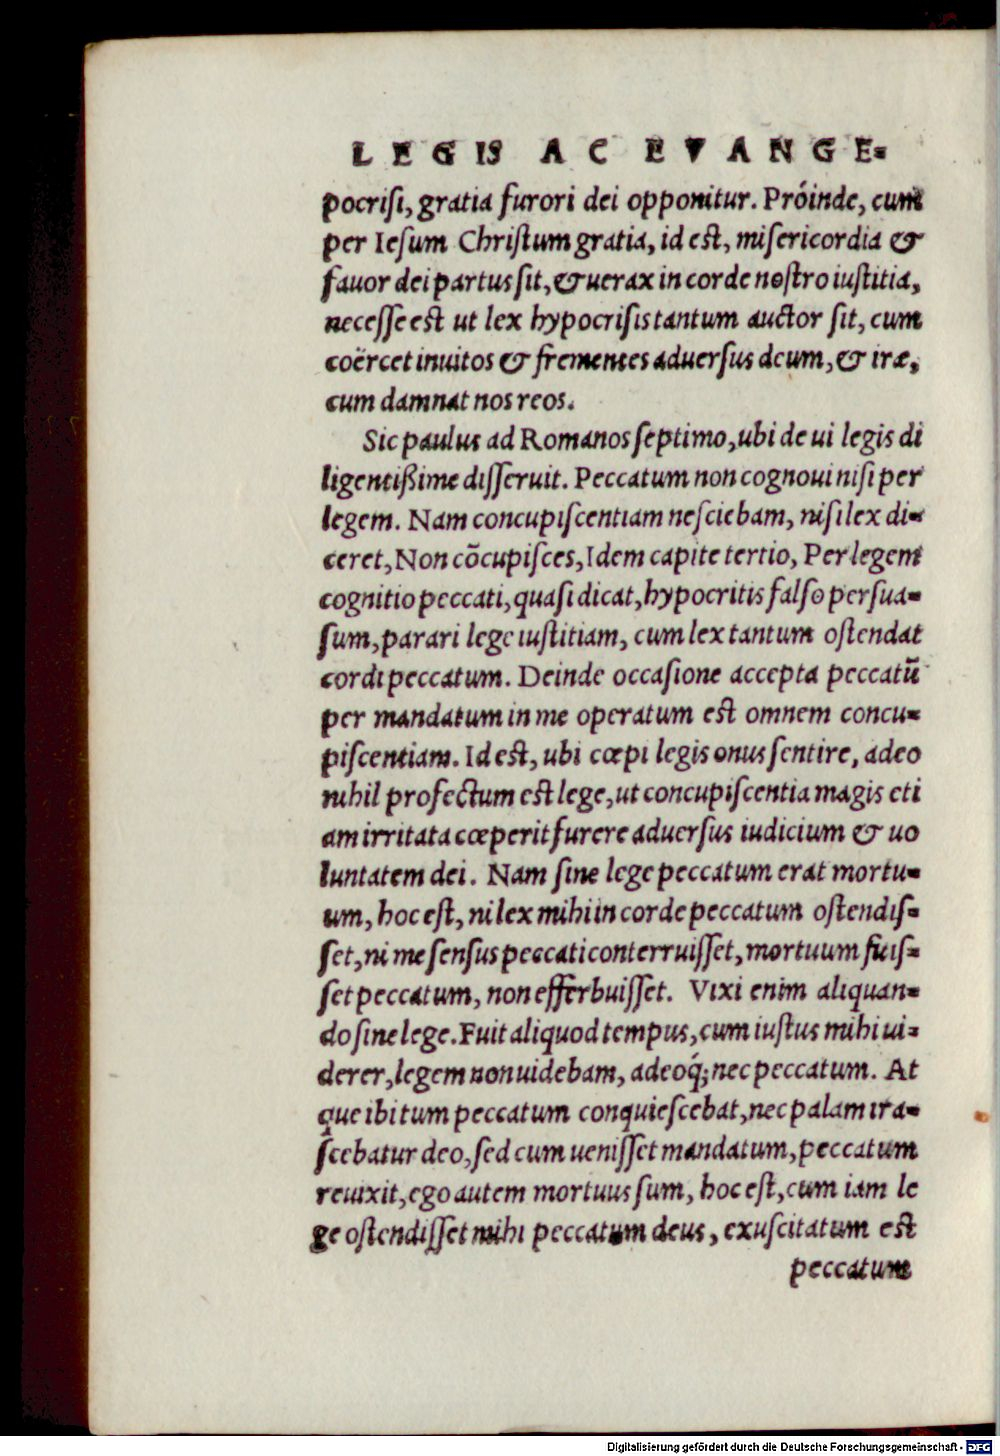 LEGIS AC EVANGE-
pocrisi, gratia furori dei opponitur. Próinde, cum
per Iesum Christum gratia, id est, misericordia &
favor dei partus sit, & uerax in corde nostro iustitia,
necesse est ut lex hypocrisis tantum auctor sit, cum
coërcet inuitos & frementes adversus deum, & iræ,
cum damnat nos reos.
Sic paulus ad Romanos septimo, ubi de ui legis di
ligentißime disseruit. Peccatum non cognoui nisi per
legem. Nam concupiscentiam nesciebam, nisi lex di-
ceret, Non cõcupisces, Idem capite tertio, Per legem
cognitio peccati, quasi dicat, hypocritis falso persua-
sum, parari lege iustitiam, cum lex tantum ostendat
cordi peccatum. Deinde occasione accepta peccatũ
per mandatum in me operatum est omnem concu-
piscentiam. Id est, ubi cœpi legis onus sentire, adeo
nihil profectum est lege, ut concupiscentia magis eti
am irritata cœperit furere aduersus iudicium & uo
luntatem dei. Nam sine lege peccatum erat mortu-
um, hoc est, ni lex mihi in corde peccatum ostendis-
set, ni me sensus peccati conterruisset, mortuum fuis-
set peccatum, non efferbuisset. Vixi enim aliquan-
do sine lege. Fuit aliquod tempus, cum iustus mihi ui-
derer, legem non uidebam, adeoq́; nec peccatum. At
que ibi tum peccatum conquiescebat, nec palam ira-
scebatur deo, sed cum uenisset mandatum, peccatum
reuixit, ego autem mortuus sum, hoc est, cum iam le
ge ostendisset mihi peccatum deus, exuscitatum est
peccatum
Digitalisierung gefördert durch die Deutsche Forschungsgemeinschaft - DFG